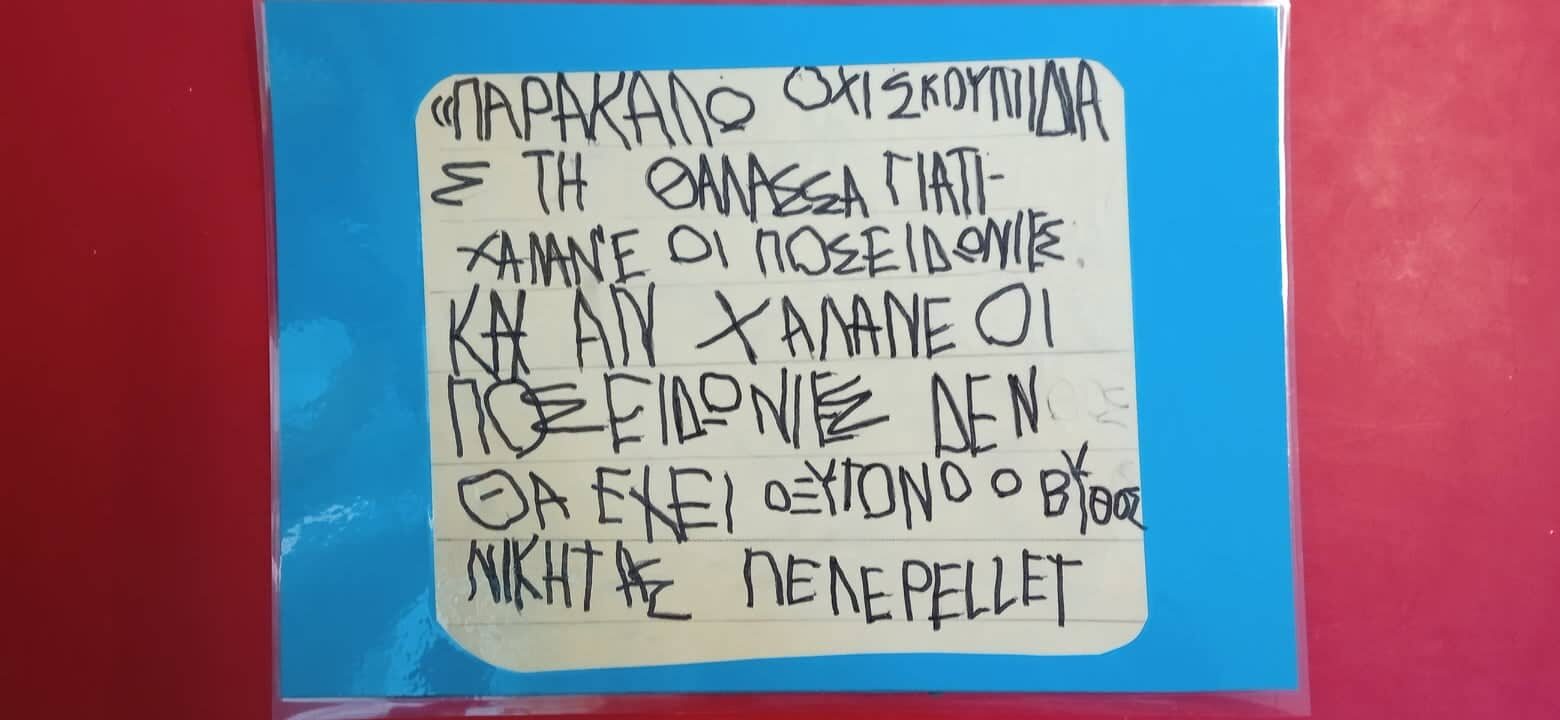 «ΠΑΡΑΚΑΛΩ ΟΧΙ ΣΚΟΥΠΙΔΙΑ
Σ ΤΗ ΘΑΛΑΣΣΑ ΓΙΑΤΙ
ΧΑΛΑΝΕ ΟΙ ΠΟΣΕΙΔΩΝΙΕΣ.
ΚΑΙ ΑΝ ΧΑΛΑΝΕ ΟΙ
ΠΟΣΕΙΔΩΝΙΕΣ ΔΕΝ
ΘΑ ΕΧΕΙ ΟΞΥΓΟΝΟ Ο ΒΥΘΟΣ
ΝΙΚΗΤΑΣ ΠΕΛΕPELLET